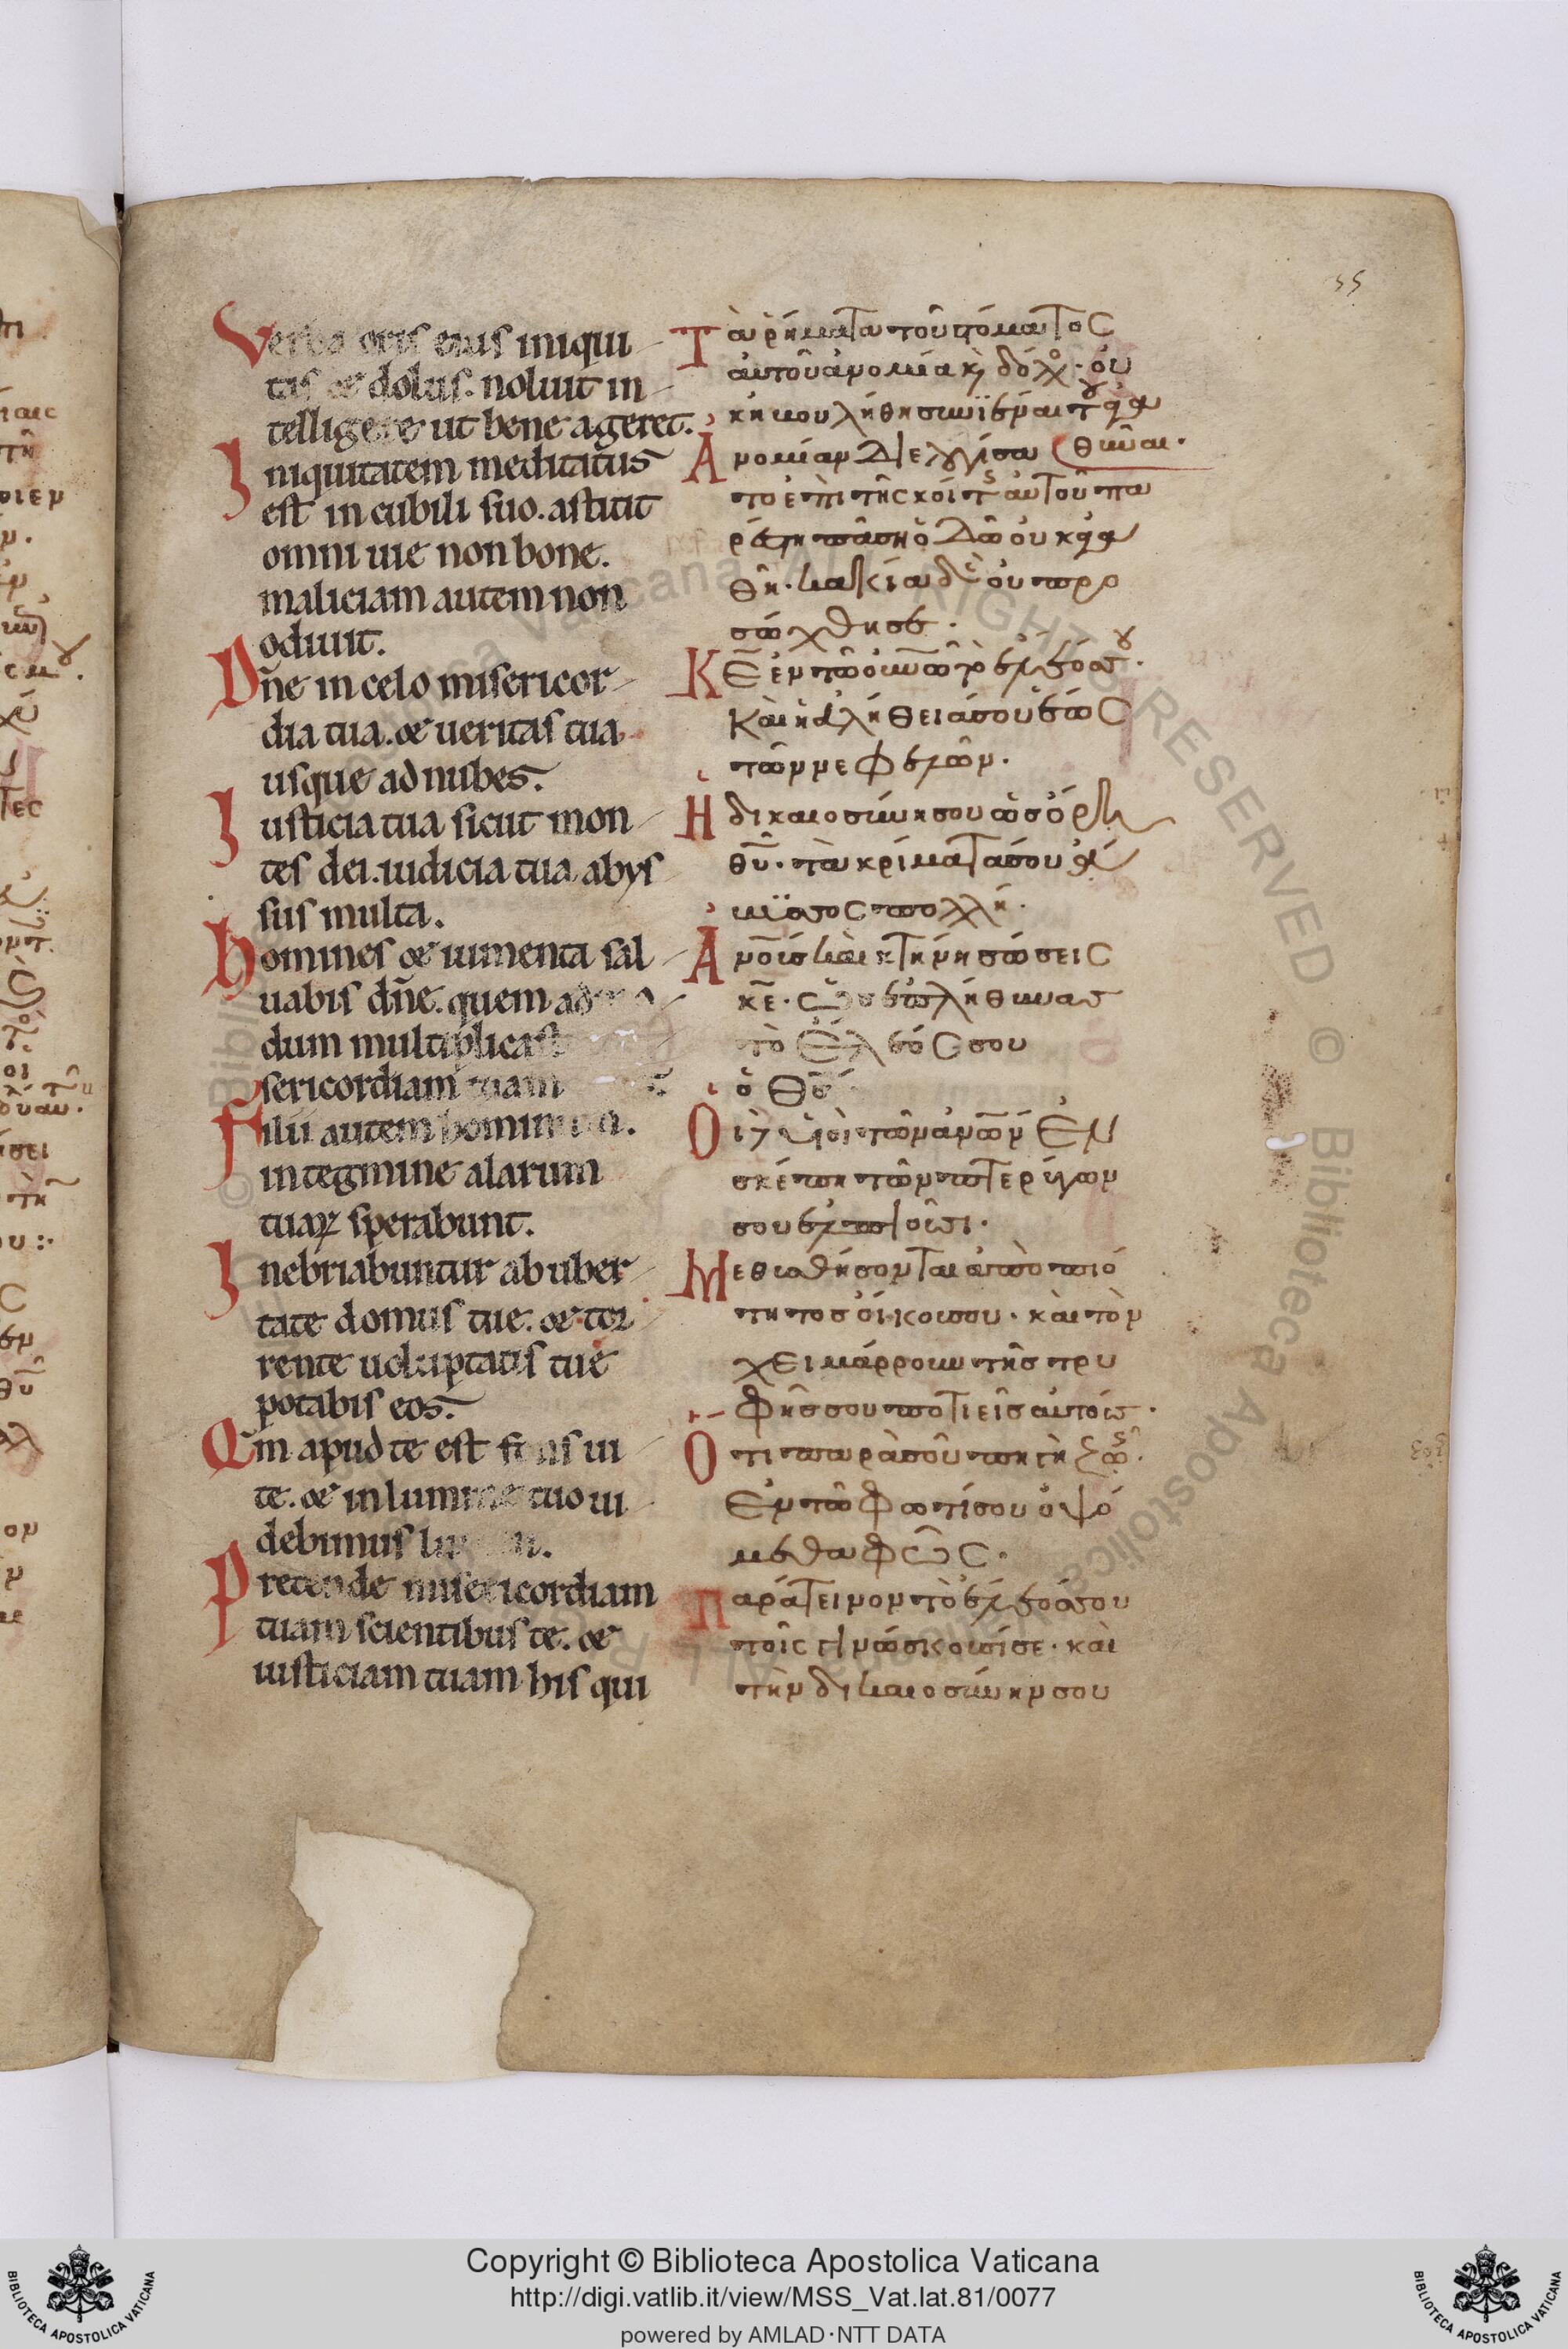 55
Verba oris eius iniqui
tis & dolus. noluit in
telligere ut bene ageret.
Iniquitatem meditatus
est in cubili suo. astitit
omni uie non bone.
maliciam autem non
odiuit.
Dñe in celo misericor
dia tua. & ueritas tua
usque ad nubes.
Iusticia tua sicut mon
tes dei. iudicia tua abys
sus multa.
Homines & iumenta sal
uabis dñe. quem
dum multiplicast
sericordiam tuam
Filii autem hominum.
in tegmine alarum
tuaꝝ sperabunt.
Inebriabuntur ab uber
tate domus tue. & tor
rente uoluptatis tue
potabis eos.
Qm̄ apud te est fons ui
te. & in lumine tuo ui
debimus lumen.
Pretende misericordiam
tuam scientibus te. &
iusticiam tuam his qui
Τὰ ῥήματα τοῦ στόματος
αὐτοῦ ἀνομία κ̀ δόλο· οὐ
κ ἠβουλήθη συνϊέναι τοῦ ἀγα
Ἀνομίαν διελογίσα θῦναι·
το ἐπὶ τῆς κοίτης αὐτοῦ πα
ρέστη πάση ὁδῶ οὐκ ἀγα
θῆ· κακία δὲ οὐ προ
σώχθησε·
Κ̅Ε̅ ἐν τῶ οὐνῶ τὸ ἔλεόσ σου·
Καὶ ἡ ἀλήθειά σου ἕως
τῶν νεφελῶν·
Ἡ δικαιοσύνη σου ὡσ ὄρη
θῦ· τὰ κρίματά σου ἄ
βϋσσος πολλή·
Ἀνοῖσ καὶ κτήνη σώσεις
κ̅ε̅· ὡσ ἐπλήθυνασ
τὸ ἔλεός σου
ὁ Θσ·
Οἱ υἱοὶ τῶν ἀνῶν ἐν
σκέπη τῶν πτερύγων
σου ἐλπιοῦσι·
Μεθυσθήσονται ἀπὸ πιό
τητοσ οἴκου σου· καὶ τὸν
χειμάρρουν τῆσ τρυ
φῆσ σου ποτιεῖσ αὐτούσ·
Ὅτι παρὰ σοῦ πηγὴ ζωῆς·
Ἐν τῶ φωτί σου ὀψό
μεθα φῶς·
Παράτεινον τὸ ἔλεόσ σου
τοῖς γινώσκουσί σε· καὶ
τὴν δικαιοσύνην σου
Copyright © Biblioteca Apostolica Vaticana
http://digi.vatlib.it/view/MSS_Vat.lat.81/0077
powered by AMLAD·NTT DATA